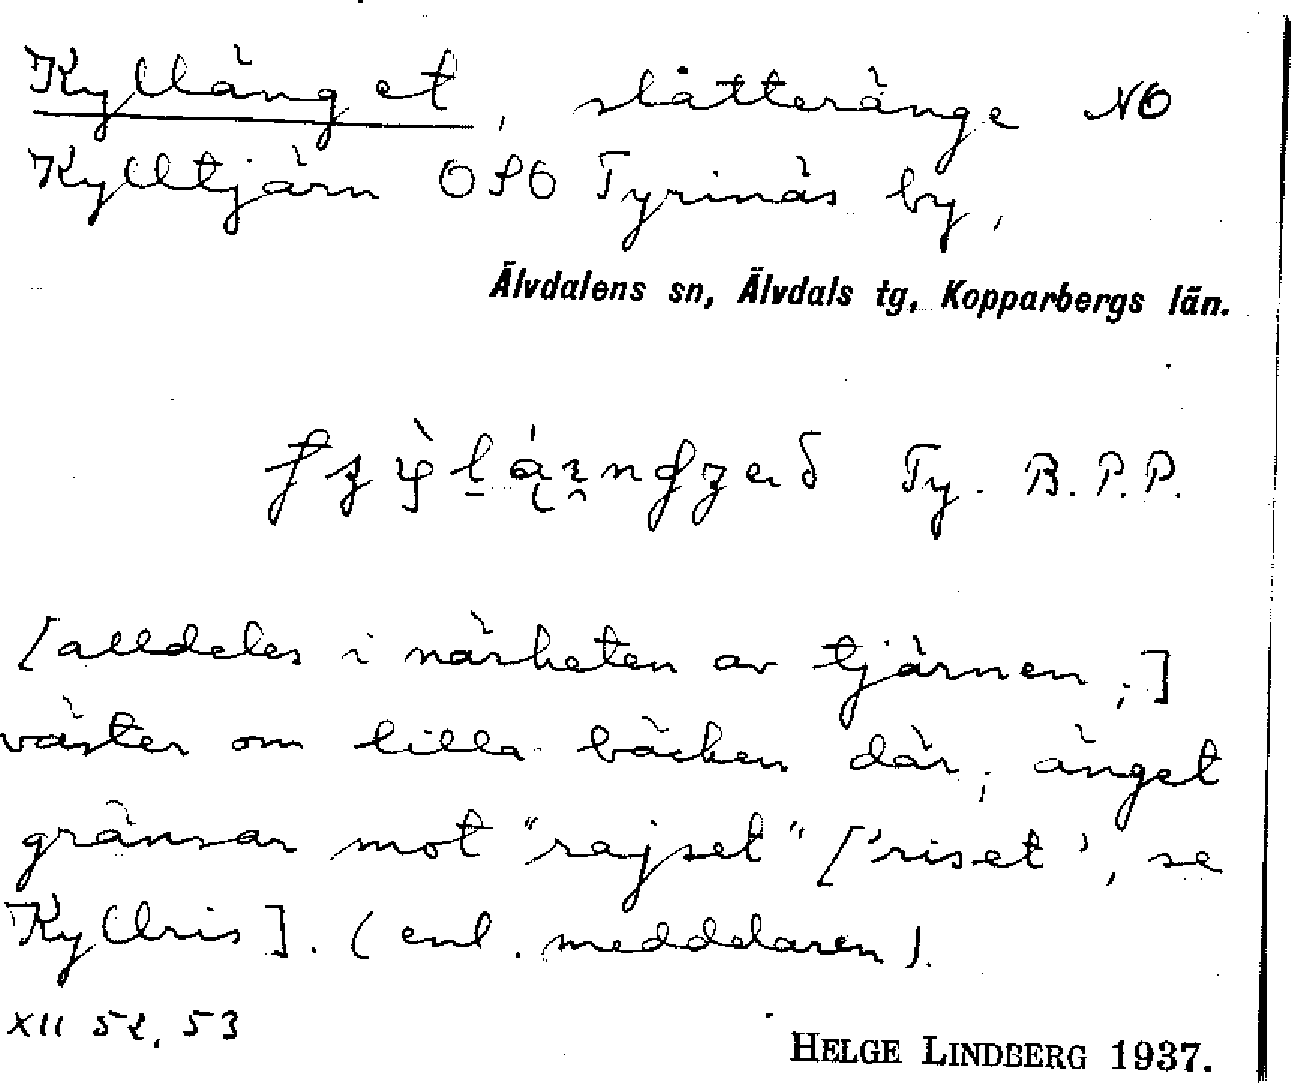 Kylläng et, slåtteränge NO
Kylltjärn OSO Tyrinäs by,
Älvdalens sn, Älvdals tg, Kopparbergs län.
Ty. B. P. P.
[alldeles i närheten av tjärnen;]
väster om lilla bäcken där; änget
gränsar mot "rajset" ['riset', se
Kyllris]. (enl. meddelaren).
XII 52, 53
HELGE LINDBERG 1937.